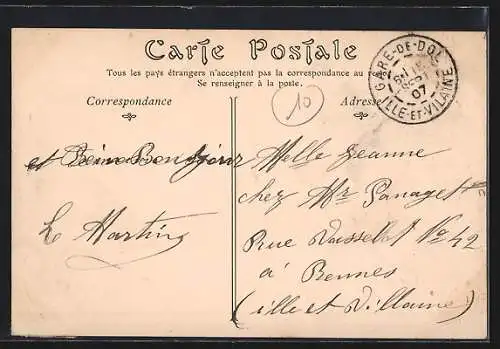 Carte Postale
Tous les pays étrangers n'acceptent pas la correspondance au
Se renseigner à la poste.
Correspondance
Adresse
10
GARE-DE-DOL
07
ILLE-ET-VILAINE
et Bonjour
L Martin
Melle Jeanne
chez Mr Panaget
Rue Vasselot No 42
à Rennes
(ille et Villaine)